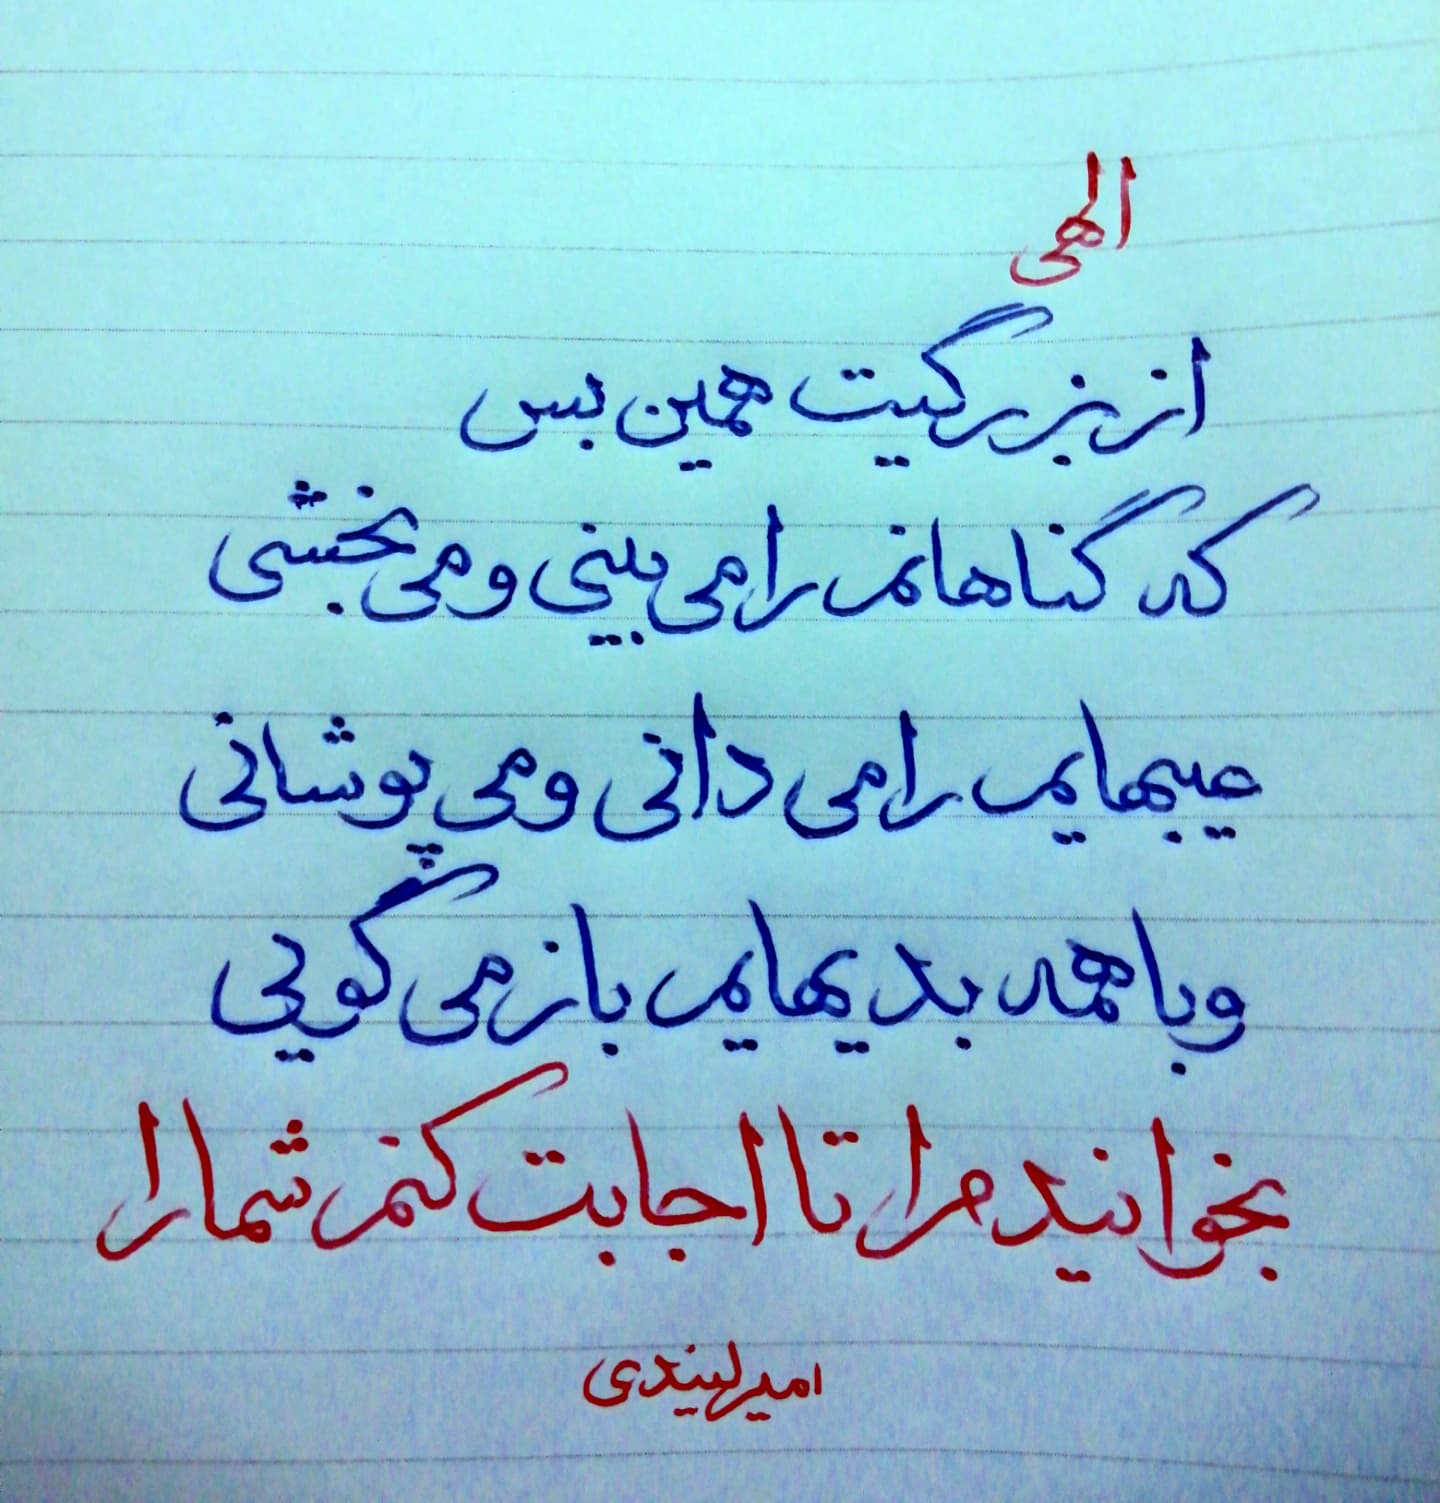 الهی
از بزرگیت همین بس
که گناهانم را می بینی و می بخشی
عیبهایم را می دانی و می پوشانی
و با همه بدیهایم باز می گویی
بخوانید مرا تا اجابت کنم شما را
امیر